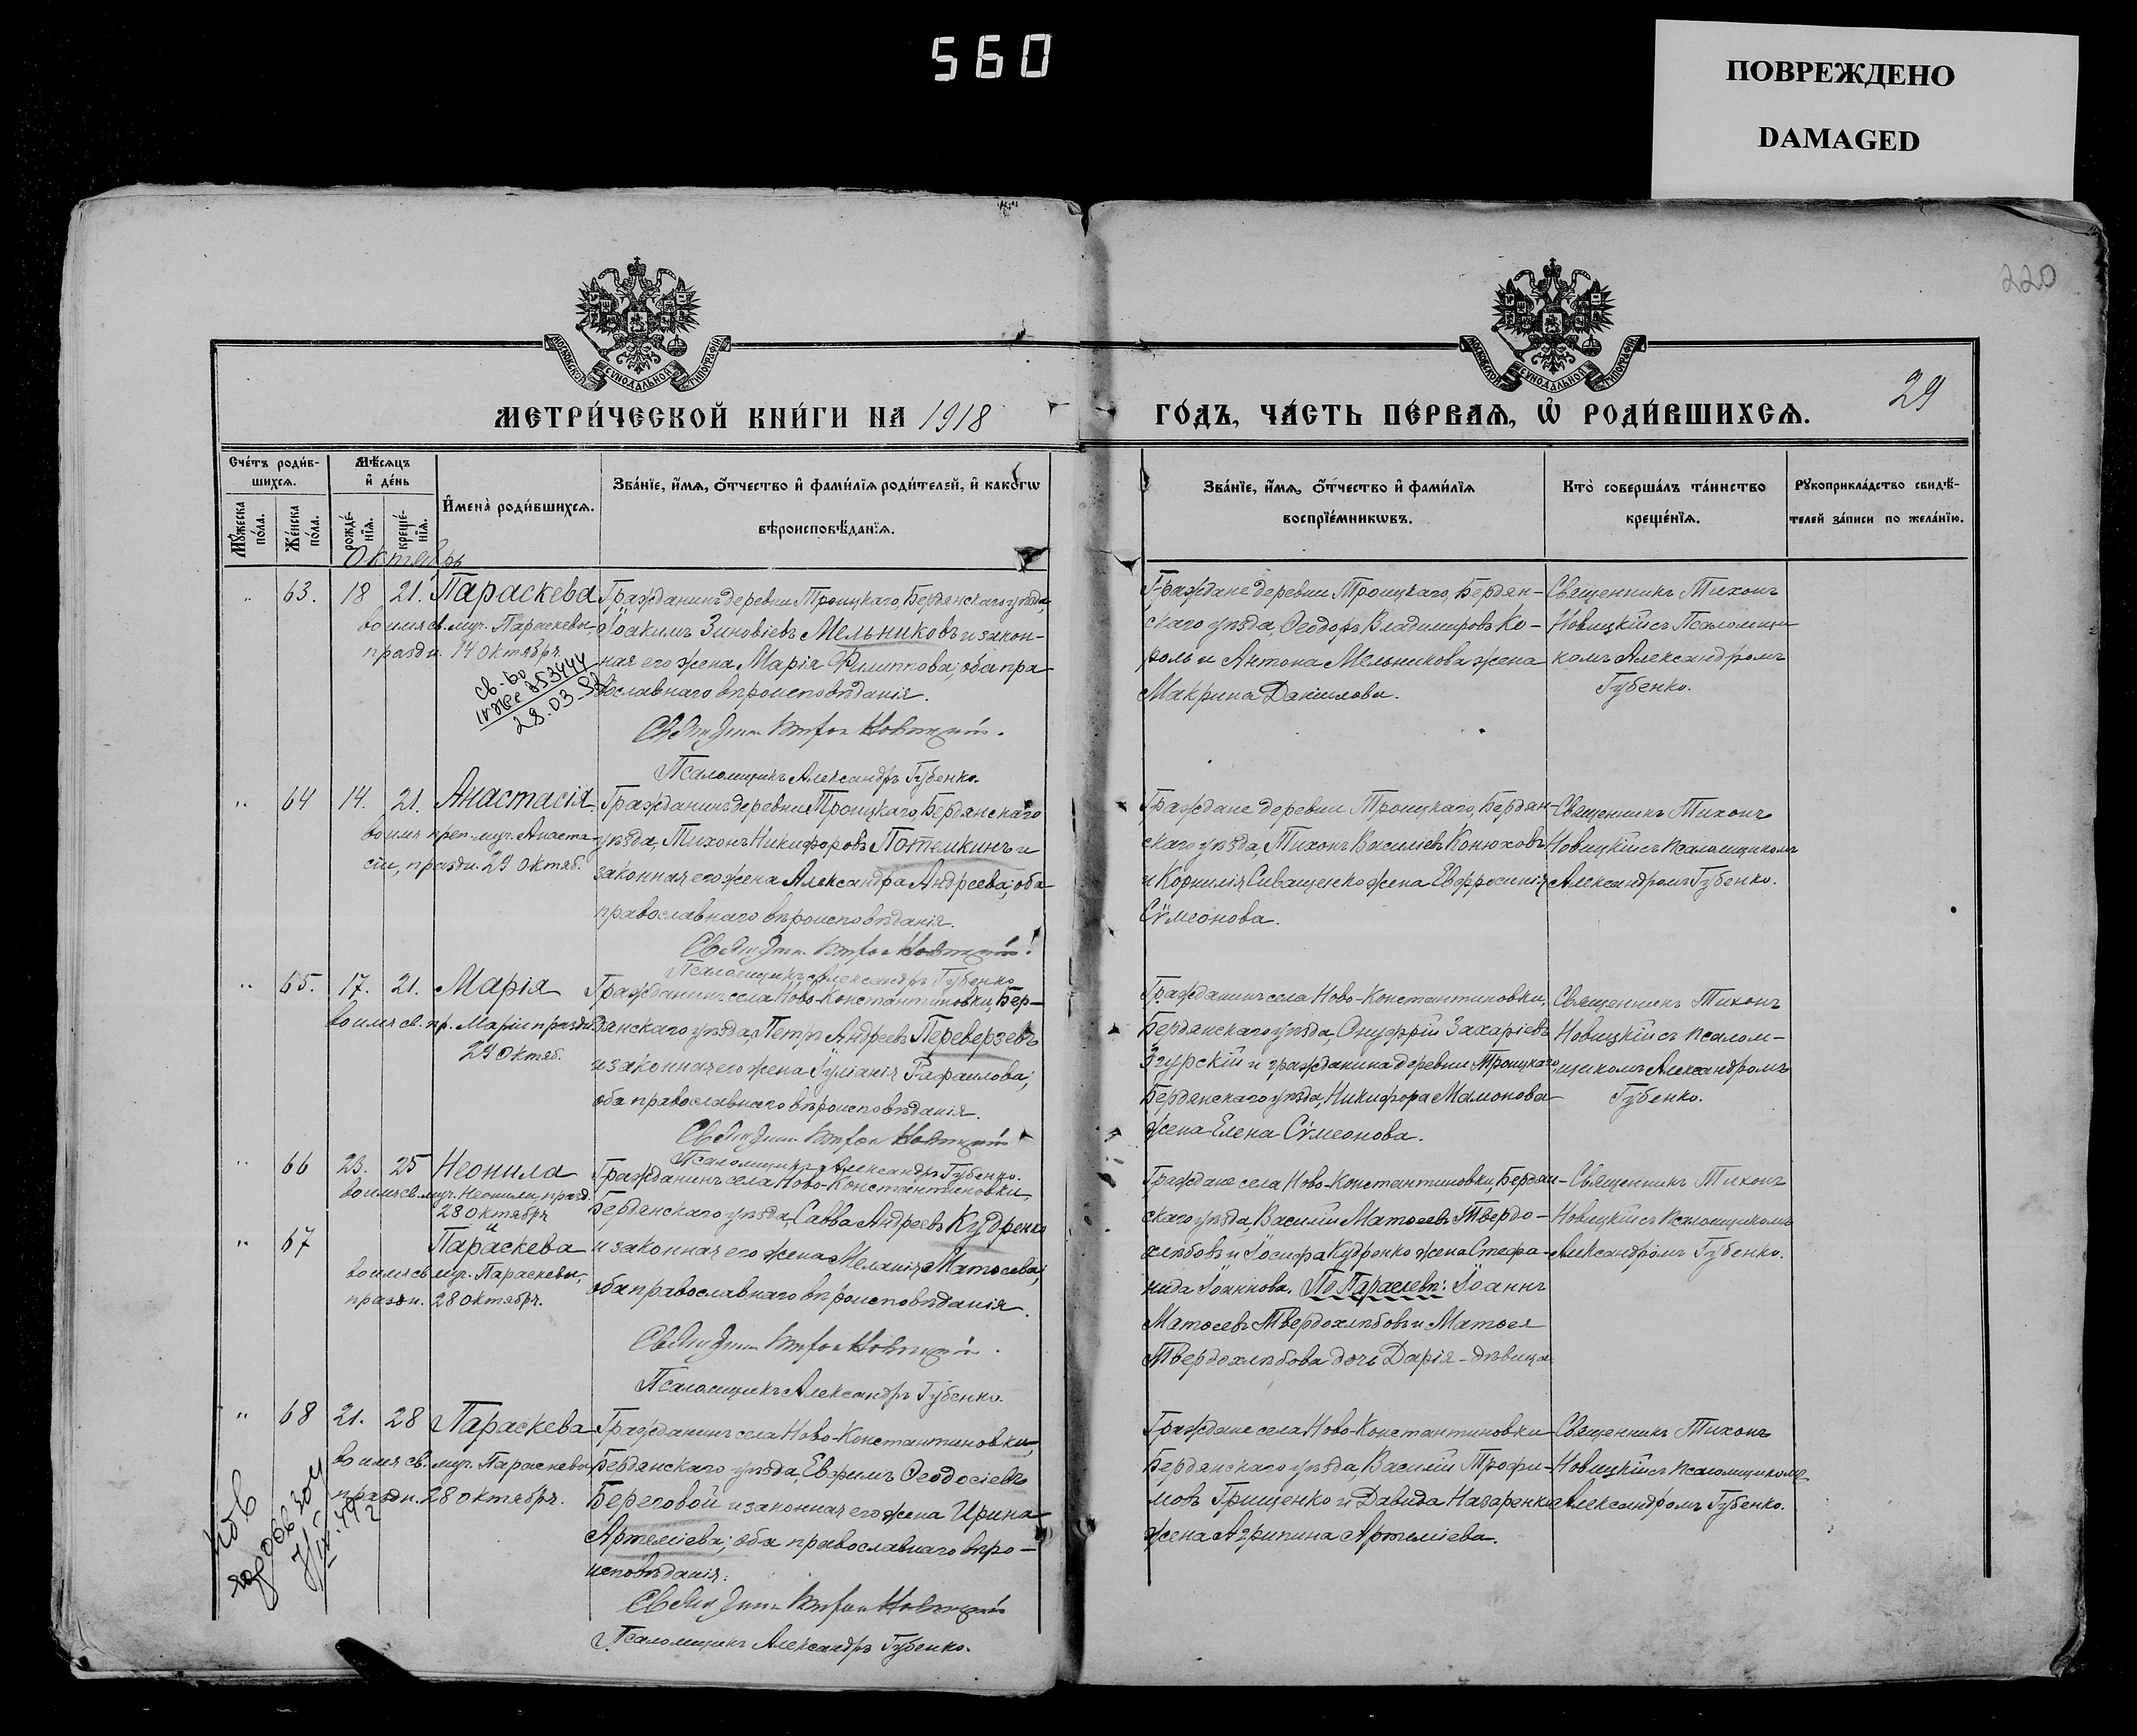 560
ПОВРЕЖДЕНО
DAMAGED
220
МОСКОВСКОЙ СѴНОДАЛЬНОЙ ТИПОГРАФІИ
МОСКОВСКОЙ СѴНОДАЛЬНОЙ ТИПОГРАФІИ
29
МЕТРИ́ЧЕСКОЙ КНИ́ГИ НА 1918
ГО́ДЪ, ЧА́СТЬ ПЕ́РВАѦ, Ѡ҆ РОДИ́ВШИХСѦ.
Сче́тъ роди́в-
шихсѧ.
Мꙋ́жеска по́ла.
Же́нска по́ла.
Мѣ́сѧцъ
и҆ де́нь
рожде́-
нїѧ.
креще́-
нїѧ.
И҆мена̀ роди́вшихсѧ.
Зва́нїе, и҆́мѧ, ѻ҆́тчество и҆ фами́лїѧ роди́телей, и҆ како́гѡ
вѣроисповѣ́данїѧ.
Зва́нїе, и҆́мѧ, ѻ҆́тчество и҆ фами́лїѧ
воспрїе́мникѡвъ.
Кто̀ соверша́лъ та́инство
креще́нїѧ.
Рꙋкоприкла́дство свидѣ́-
телей за́писи по жела́нїю.
Октябрь
" 63. 18 21. Параскева
во имя св. муч. Параскевы,
праздн. 14 октября.
св-во
28.03.
Гражданинъ деревни Троицкаго, Бердянскаго уѣзда,
Іоакимъ Зиновіевъ Мельниковъ и закон-
ная его жена Марія Филиппова, оба пра-
вославнаго вѣроисповѣданія.
Священникъ Тихон Новицкій.
Псаломщикъ Александръ Губенко.
Граждане деревни Троицкаго, Бердян-
скаго уѣзда, Ѳеодоръ Владимировъ Ко-
роль и Антона Мельникова жена
Макрина Данилова.
Священникъ Тихонъ
Новицкій съ Псаломщи-
комъ Александромъ
Губенко.
" 64 14. 21. Анастасія
во имя преп. муч. Анаста-
сіи, праздн. 29 октяб.
Гражданинъ деревни Троицкаго, Бердянскаго
уѣзда, Тихонъ Никифоровъ Потемкинъ и
законная его жена Александра Андреева, оба
православнаго вѣроисповѣданія.
Священникъ Тихон Новицкій.
Псаломщикъ Александръ Губенко
Граждане деревни Троицкаго, Бердян-
скаго уѣзда, Тихонъ Василіевъ Конюховъ
и Корнилія Сиващенко жена Евфросинія
Сѵмеонова.
Священникъ Тихонъ
Новицкій съ псаломщикомъ
Александромъ Губенко.
" 65. 17. 21. Марія
во имя св. пр. Маріи праздн.
29 октяб.
Гражданинъ села Ново-Константиновки, Бер-
дянскаго уѣзда, Петръ Андреевъ Переверзевъ
и законная его жена Іуліанія Рафаилова;
оба православнаго вѣроисповѣданія.
Священникъ Тихон Новицкій
Псаломщикъ Александръ Губенко.
Гражданинъ села Ново-Константиновки,
Бердянскаго уѣзда, Онуфрій Захаріевъ
Згурскій и гражданина деревни Троицкаго,
Бердянскаго уѣзда, Никифора Мамонова
жена Елена Сѵмеонова.
Священникъ Тихонъ
Новицкій съ псалом-
щикомъ Александромъ
Губенко.
" 66 23. 25 Неонила
во имя св. муч. Неонилы, празд.
28 октября
и
" 67 Параскева
во имя св. муч. Параскевы,
праздн. 28 октября.
Гражданинъ села Ново-Константиновки
Бердянскаго уѣзда, Савва Андреевъ Кудренко
и законная его жена Меланія Матѳеева;
оба православнаго вѣроисповѣданія.
Священникъ Тихон Новицкій.
Псаломщикъ Александръ Губенко.
Граждане села Ново-Константиновки, Бердян-
скаго уѣзда, Василій Матѳеевъ Твердо-
хлѣбовъ и Іосифа Кудренко жена Стефа-
нида Іоаннова. По Параскевѣ: Іоаннъ
Матѳеевъ Твердохлѣбовъ и Матѳея
Твердохлѣбова дочь Дарія - дѣвица.
Священникъ Тихонъ
Новицкій съ псаломщикомъ
Александромъ Губенко.
" 68 21. 28 Параскева
во имя св. муч. Параскевы,
праздн. 28 октября.
Гражданинъ села Ново-Константиновки,
Бердянскаго уѣзда, Евфимъ Ѳеодосіевъ
Береговой и законная его жена Ирина
Артеміева; оба православнаго вѣро-
исповѣданія.
Священникъ Тихон Новицкій
Псаломщикъ Александръ Губенко.
Граждане села Ново-Константиновки
Бердянскаго уѣзда, Василій Трофи-
мовъ Грищенко и Давида Назаренка
жена Агрипина Артеміева.
Священникъ Тихонъ
Новицкій съ псаломщикомъ
Александромъ Губенко.